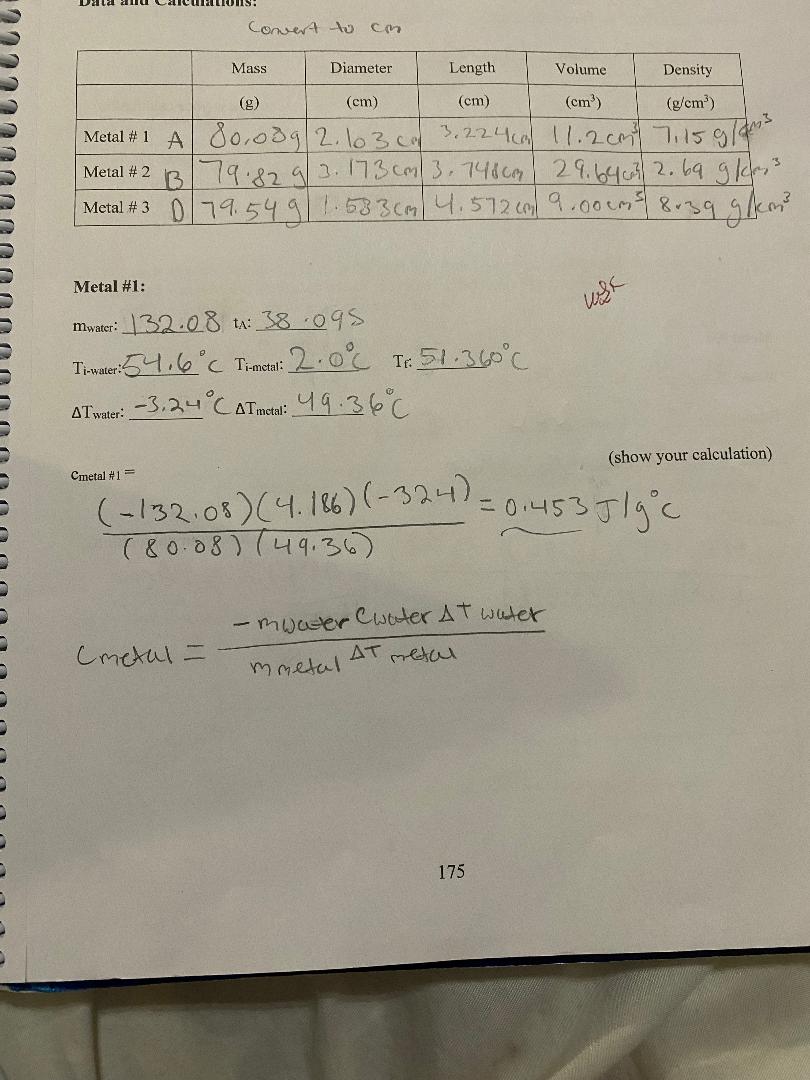 Data and Calculations:
Convert to cm
Mass Diameter Length Volume Density
(g) (cm) (cm) (cm³) (g/cm³)
Metal # 1 A 80.08g 2.103 cm 3.224cm 11.2cm³ 7.15 g/cm³
Metal # 2 B 79.82 g 3.173cm 3.748cm 29.64cm³ 2.69 g/cm³
Metal # 3 D 79.54 g 1.583cm 4.572cm 9.00cm³ 8.39 g/cm³
Metal #1:
mwater: 132.08 tA: 38.095
Ti-water: 54.6°C Ti-metal: 2.0°C Tf: 51.360°C
ΔTwater: -3.24°C ΔTmetal: 49.36°C
(show your calculation)
cmetal #1 =
(-132.08)(4.186)(-324) = 0.453 J/g°C
(80.08)(49.36)
Cmetal = -mwater Cwater ΔT water
m metal ΔT metal
175